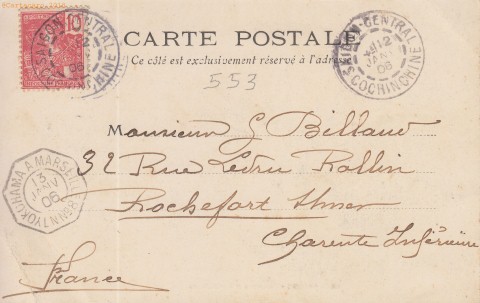 10
SAIGON-CENTRAL
12
JANV
06
COCHINCHINE
CARTE POSTALE
Ce côté est exclusivement réservé à l'adresse
SAIGON-CENTRAL
12
JANV
06
COCHINCHINE
553
Monsieur G Billaud
32 Rue Ledru Rollin
Rochefort s/mer
Charente Inférieure
France
YOKOHAMA A MARSEILLE
13
JANV
06